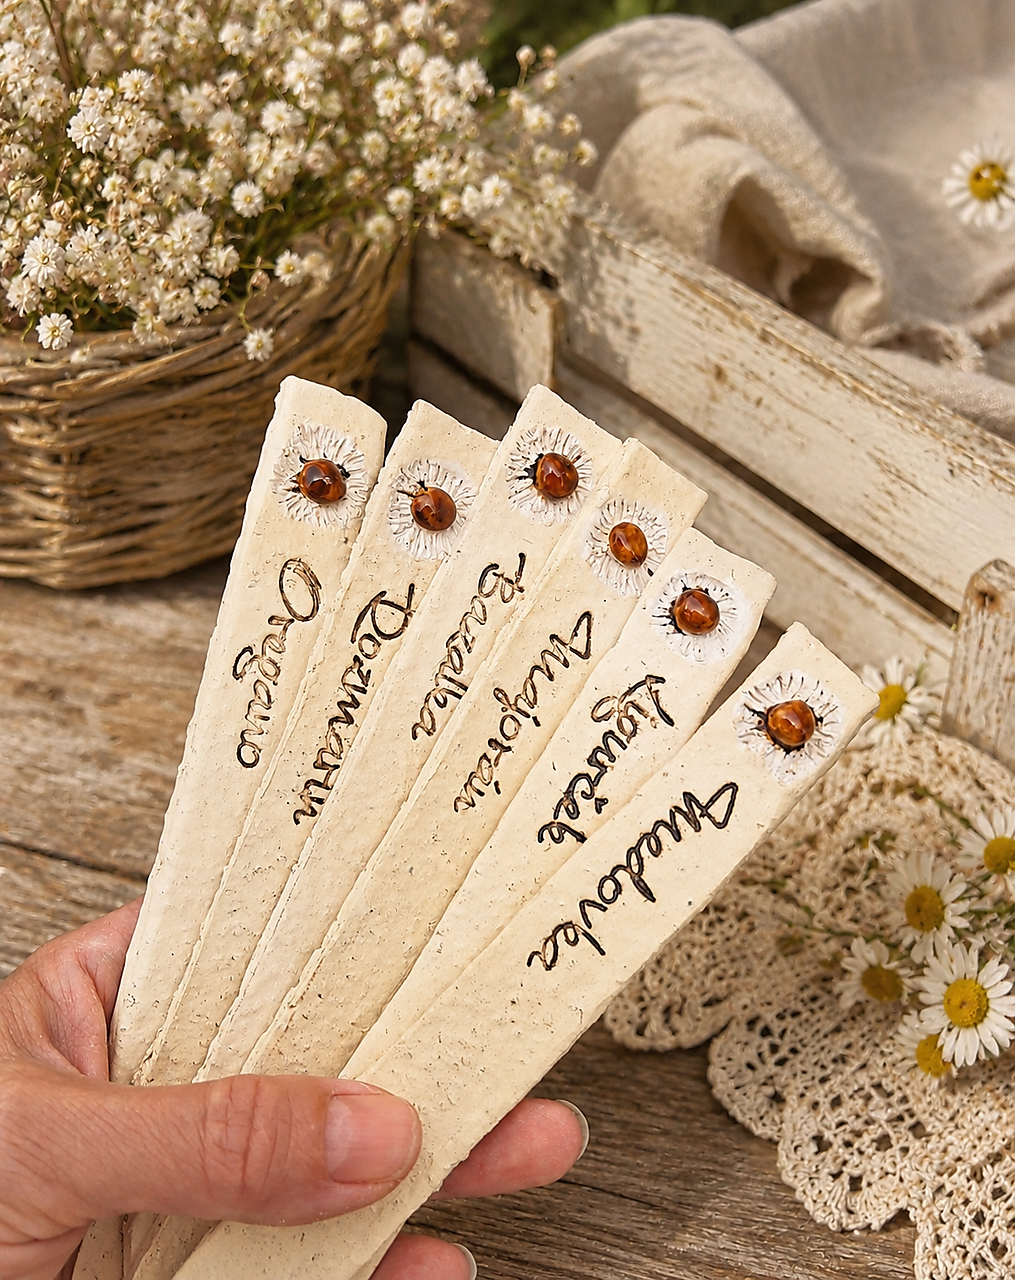 Oregano
Rozmarín
Bazalka
Majorán
Ligurček
Medovka